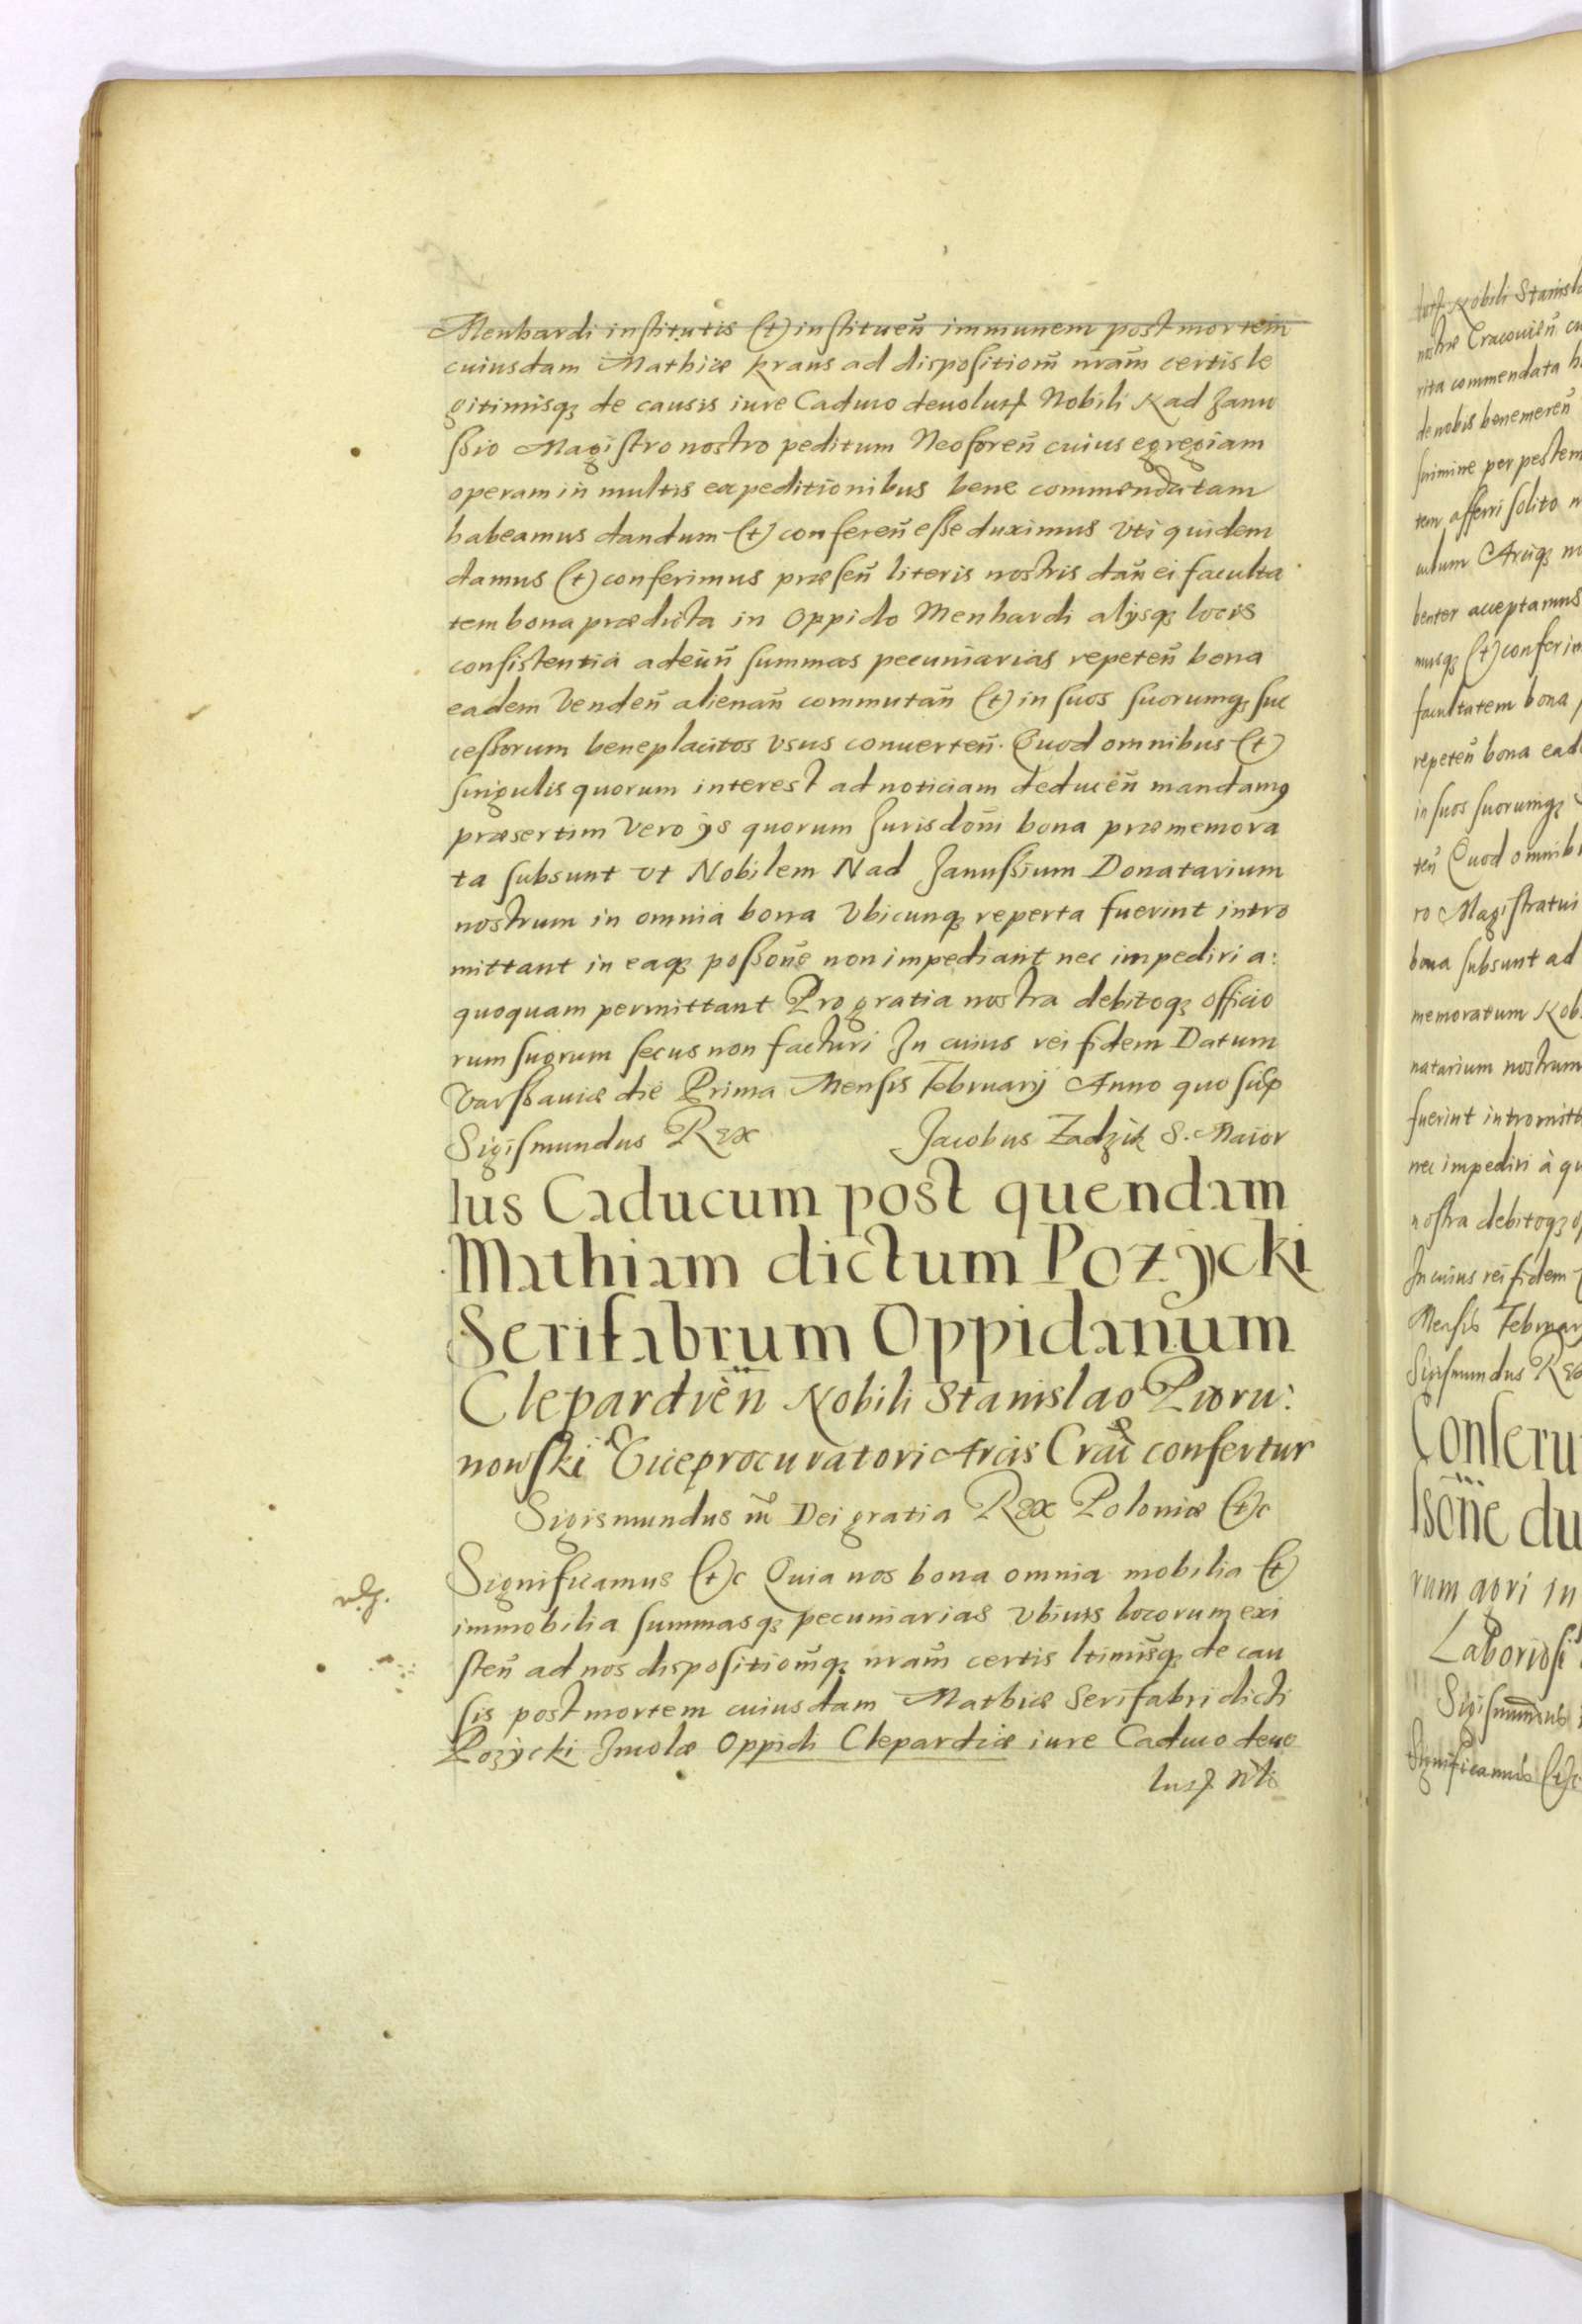 Menhardi institutis (et) instituen̄ immunem post mortem
cuiusdam Mathiæ Kraus ad dispositiom̄ nr̄am certis le
gitimisq; de causis iure Caduco deuolut Nobili Nad Janu
ssio Magistro nostro peditum Neoforen̄ cuius egregiam
operam in multis expeditionibus bene commendatam
habeamus dandum (et) conferen̄ esse duximus Vti quidem
damus (et) conferimus præsen̄ literis nostris dan̄ ei faculta
tem bona prædicta in Oppido Menhardi alijsq; locis
consistentia adeun̄ summas pecuniarias repeten̄ bona
eadem Venden̄ alienan̄ commutan̄ (et) in suos suorumq; suc
cessorum beneplacitos vsus conuerten̄. Quod omnibus (et)
singulis quorum interest ad noticiam deducen̄ mandamꝰ
præsertim Vero ijs quorum Jurisdom̄ bona præmemora
ta subsunt vt Nobilem Nad Janussium Donatarium
nostrum in omnia bona Vbicunq; reperta fuerint intro
mittant in eaq; posson̄e non impediant nec impediri a:
quoquam permittant Pro gratia nostra debitoq; officio
rum suorum secus non facturi In cuius rei fidem Datum
Varssauiæ die Prima Mensis Februarij Anno quo sup
Sigismundus Rex Jacobus Zadzik S. Maior
Ius Caducum post quendam
Mathiam dictum Pozÿcki
Serifabrum Oppidanum
Clepardien̄ Nobili Stanislao Pioru:
nowski Viceprocuratori Arcis Crac̄ confertur
Sigismundus iii Dei gratia Rex Poloniæ (et)c
Significamus (et)c Quia nos bona omnia mobilia (et)
immobilia summasq; pecuniarias vbiuis locorum exi
sten̄ ad nos dispositiom̄q; nr̄am certis ltimisq; de cau
sis post mortem cuiusdam Mathiæ Serifabri dicti
Pozÿcki Incolæ Oppidi Clepardiæ iure Caduco deuo
lut Nli
nostræ Cracouien̄
rita commendata
de nobis benemeren̄
per pestem
tem afferri solito
benter acceptamus
musq; (et) conferim
facultatem bona
repeten̄ bona ead
in suos suorumq;
ten̄ Quod omnib
ro Magistratui
bona subsunt ad
memoratum Nob
natarium nostrum
fuerint intromitt
nec impediri à qu
nostra debitoq; of
In cuius rei fidem
Mensis Februar
Sigismundus Rex
Conseru
sson̄e du
rum agri in
Laboriosi
Sigismundus
Significamus (et)c